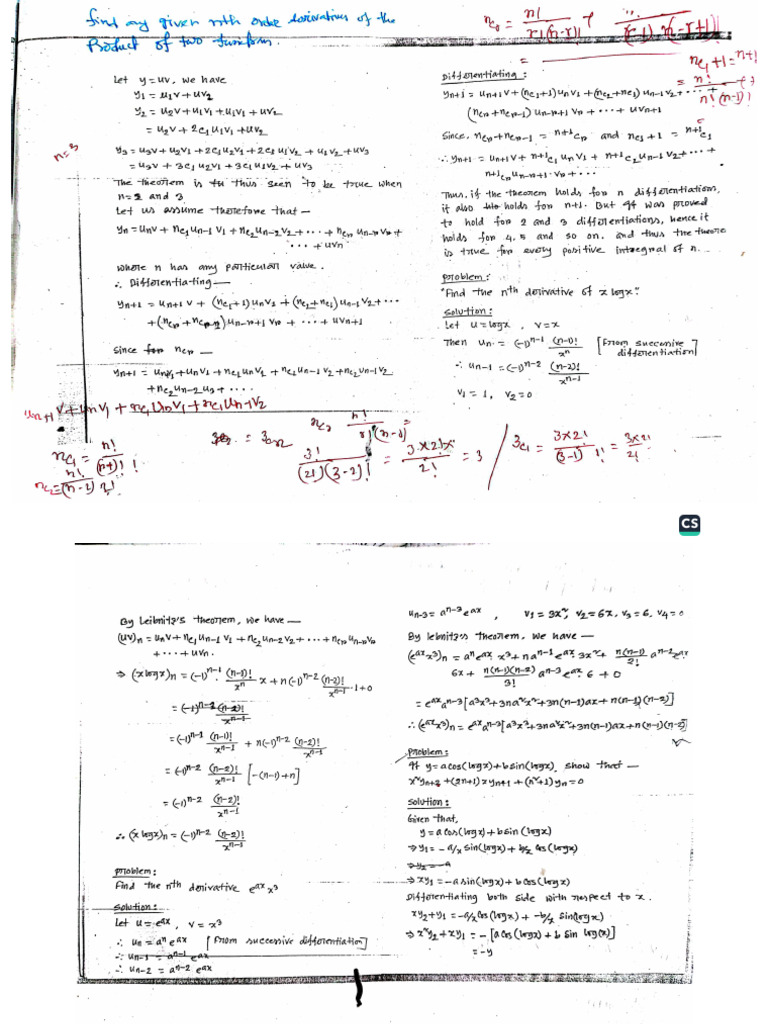 find any given nth order derivatives of the
Product of two function.
Let y = uv, we have
y₁ = u₁v + uv₂
y₂ = u₂v + u₁v₁ + u₁v₁ + uv₂
= u₂v + 2c₁u₁v₁ + uv₂
n=3
y₃ = u₃v + u₂v₁ + 2c₁u₂v₁ + 2c₁u₁v₂ + u₁v₂ + uv₃
= u₃v + 3c₁u₂v₁ + 3c₁u₁v₂ + uv₃
The theorem is thus seen to be true when
n=2 and 3
Let us assume therefore that —
yn = unv + nc₁un-1 v₁ + nc₂un-2v₂ + ··· + ncr un-r vr +
··· + uvn
where n has any particular value.
∴ Differentiating —
yn+1 = un+1 v + (nc₁+1)unv₁ + (nc₂+nc₁)un-1v₂ + ···
+(ncr + ncr-1)un-r+1 vr + ··· + uvn+1
Since for ncr —
+nc₂un-2u₃ + ····
un+1 v + unv₁ + nc₁unv₁ + nc₁un-1v₂
Differentiating:
yn+1 = un+1v + (nc₁+1)unv₁ + (nc₂+nc₁)un-1v₂ + ··· +
(ncr+ncr-1)un-r+1 vr + ··· + uvn+1
Since, ncr+ncr-1 = n+1cr and nc₁+1 = n+1c₁
∴yn+1 = un+1v + n+1c₁ unv₁ + n+1c₂un-1v₂ + ··· +
n+1cr un-r+1vr + ··· + uvn+1
Thus, if the theorem holds for n differentiations,
it also holds for n+1. But it was proved
to hold for 2 and 3 differentiations, hence it
holds for 4, 5 and so on. and thus the theore
is true for every positive integral of n.
problem:
"Find the nth derivative of x logx".
Solution:
Let u = logx , v = x
Then un = (-1)ⁿ⁻¹ (n-1)!/xⁿ [From successive differentiation]
∴ un-1 = (-1)ⁿ⁻² (n-2)!/xⁿ⁻¹
v₁ = 1, v₂ = 0
3!/(2!)(3-2)! = 3×2!/2! = 3
3c₁ = 3×2!/(3-1)! 1! = 3×2!/2!
CS
By Leibnitz's theorem, we have —
(uv)n = unv + nc₁un-1 v₁ + nc₂un-2v₂ + ··· + ncrun-rvr
+ ··· + uvn.
⇒ (xlogx)n = (-1)ⁿ⁻¹ · (n-1)!/xⁿ x + n(-1)ⁿ⁻² (n-2)!/xⁿ⁻¹ · 1+0
= (-1)ⁿ⁻² (n-2)!/xⁿ⁻¹
= (-1)ⁿ⁻¹ (n-1)!/xⁿ⁻¹ + n(-1)ⁿ⁻² (n-2)!/xⁿ⁻¹
= (-1)ⁿ⁻² (n-2)!/xⁿ⁻¹ [-(n-1)+n]
= (-1)ⁿ⁻² (n-2)!/xⁿ⁻¹
∴ (x logx)n = (-1)ⁿ⁻² (n-2)!/xⁿ⁻¹
problem:
Find the nth derivative eᵃˣ x³
Solution:
Let u = eᵃˣ , v = x³
∴ un = aⁿ eᵃˣ [From successive differentiation]
∴ un-1 = aⁿ⁻¹ eᵃˣ
∴ un-2 = aⁿ⁻² eᵃˣ
un-3 = aⁿ⁻³ eᵃˣ , v₁ = 3x², v₂ = 6x, v₃ = 6, v₄ = 0
By leibnitz's theorem, we have —
(eᵃˣx³)n = aⁿeᵃˣ x³ + n aⁿ⁻¹ eᵃˣ 3x² + n(n-1)/2! aⁿ⁻² eᵃˣ
6x + n(n-1)(n-2)/3! aⁿ⁻³ eᵃˣ · 6 + 0
= eᵃˣ aⁿ⁻³ [a³x³ + 3na²x² + 3n(n-1)ax + n(n-1)(n-2)]
∴ (eᵃˣx³)n = eᵃˣ aⁿ⁻³ [a³x³ + 3na²x² + 3n(n-1)ax + n(n-1)(n-2)]
problem:
If y = acos(logx) + bsin(logx), show that —
x²yn+2 + (2n+1)xyn+1 + (n²+1)yn = 0
Solution:
Given that,
y = a cos(logx) + b sin(logx)
⇒ y₁ = -a/x sin(logx) + b/x cos(logx)
⇒ y₂ = -a
⇒ xy₁ = -a sin(logx) + b cos(logx)
Differentiating both side with respect to x.
xy₂ + y₁ = -a/x cos(logx) + -b/x sin(logx)
⇒ x²y₂ + xy₁ = -[a cos(logx) + b sin log(x)]
= -y